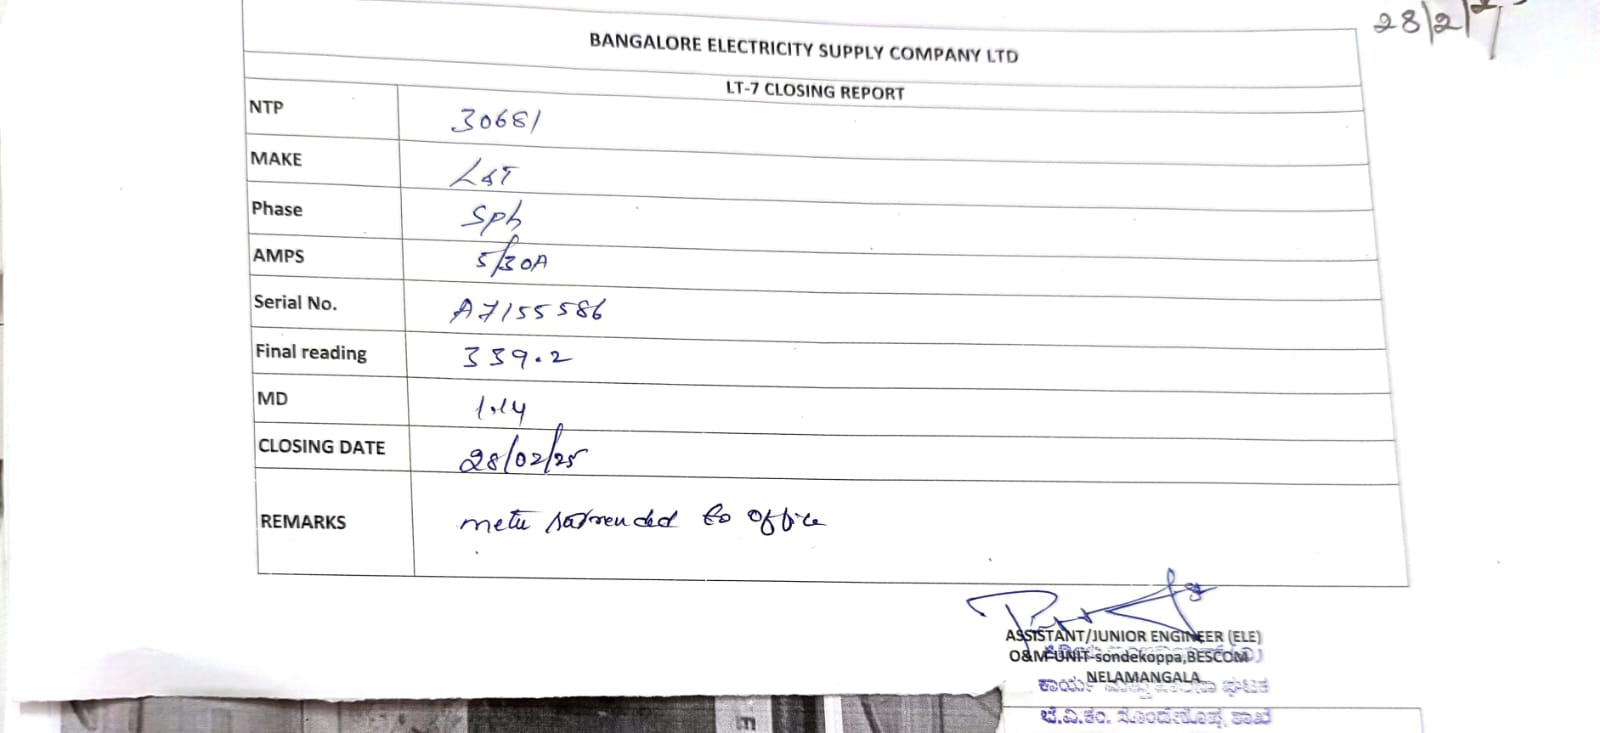 28/2/25
BANGALORE ELECTRICITY SUPPLY COMPANY LTD
LT-7 CLOSING REPORT
NTP 30681
MAKE L&T
Phase Sph
AMPS 5/30A
Serial No. A7155586
Final reading 339.2
MD 1.14
CLOSING DATE 28/02/25
REMARKS metu surrended to office
ASSISTANT/JUNIOR ENGINEER (ELE)
O&M UNIT-sondekoppa,BESCOM
NELAMANGALA
ಕಾರ್ಯ ಘಟಕ
ಬೆ.ವಿ.ಕಂ. ಸೊಂಡೇಕೊಪ್ಪ ಶಾಖೆ